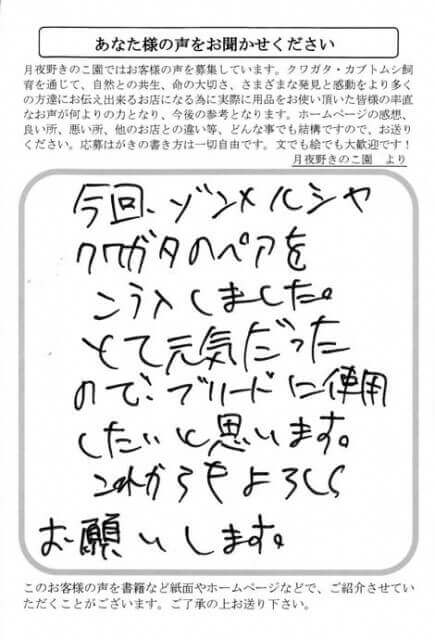 あなた様の声をお聞かせください
月夜野きのこ園ではお客様の声を募集しています。クワガタ・カブトムシ飼
育を通じて、自然との共生、命の大切さ、さまざまな発見と感動をより多く
の方達にお伝え出来るお店になる為に実際に用品をお使い頂いた皆様の率直
なお声が何よりの力となり、今後の参考となります。ホームページの感想、
良い所、悪い所、他のお店との違い等、どんな事でも結構ですので、お送り
ください。応募はがきの書き方は一切自由です。文でも絵でも大歓迎です！
月夜野きのこ園　より
今回、ゾンメルシヤ
クワガタのペアを
こう入しました。
とて元気だった
ので、ブリードに使用
したいと思います。
これからもよろしく
お願いします。
このお客様の声を書籍など紙面やホームページなどで、ご紹介させてい
ただくことがございます。ご了承の上お送り下さい。